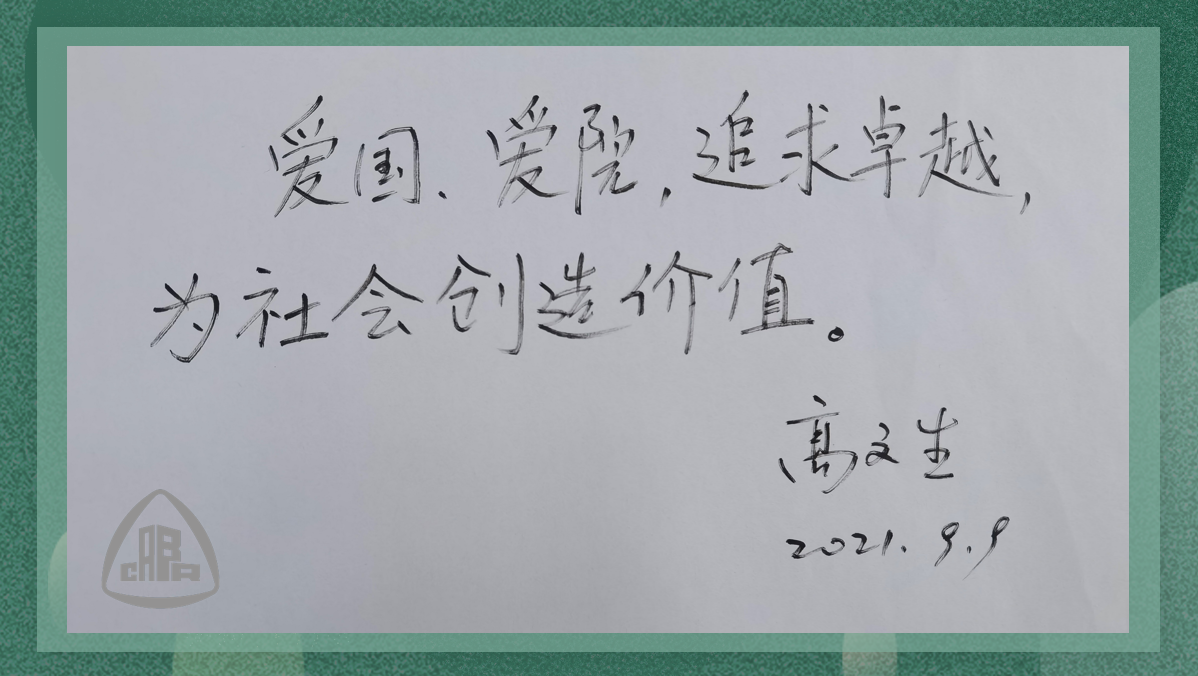 爱国、爱院,追求卓越,
为社会创造价值。
高文生
2021.9.9
CABR